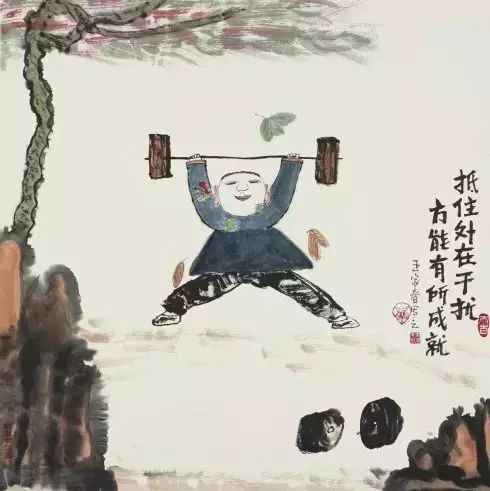 抵住外在干扰
方能有所成就
王家春写之